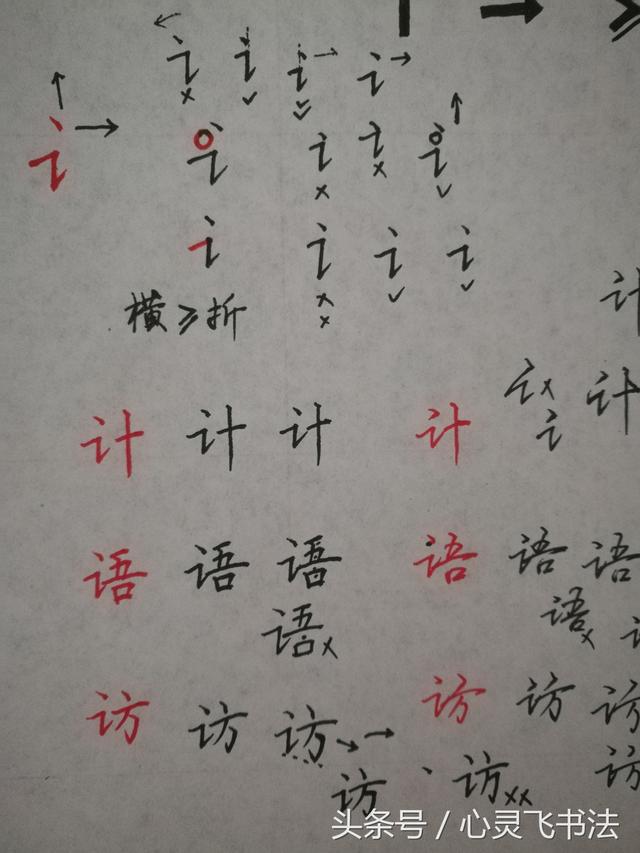 讠 讠 讠 讠
讠 讠 讠 讠 讠
讠 讠 讠 讠
横≥折
计
计 计 计 计 讠 计
讠
语 语 语 语 语 语
语 语
访 访 访 访 访 访
访 访 访
头条号 / 心灵飞书法